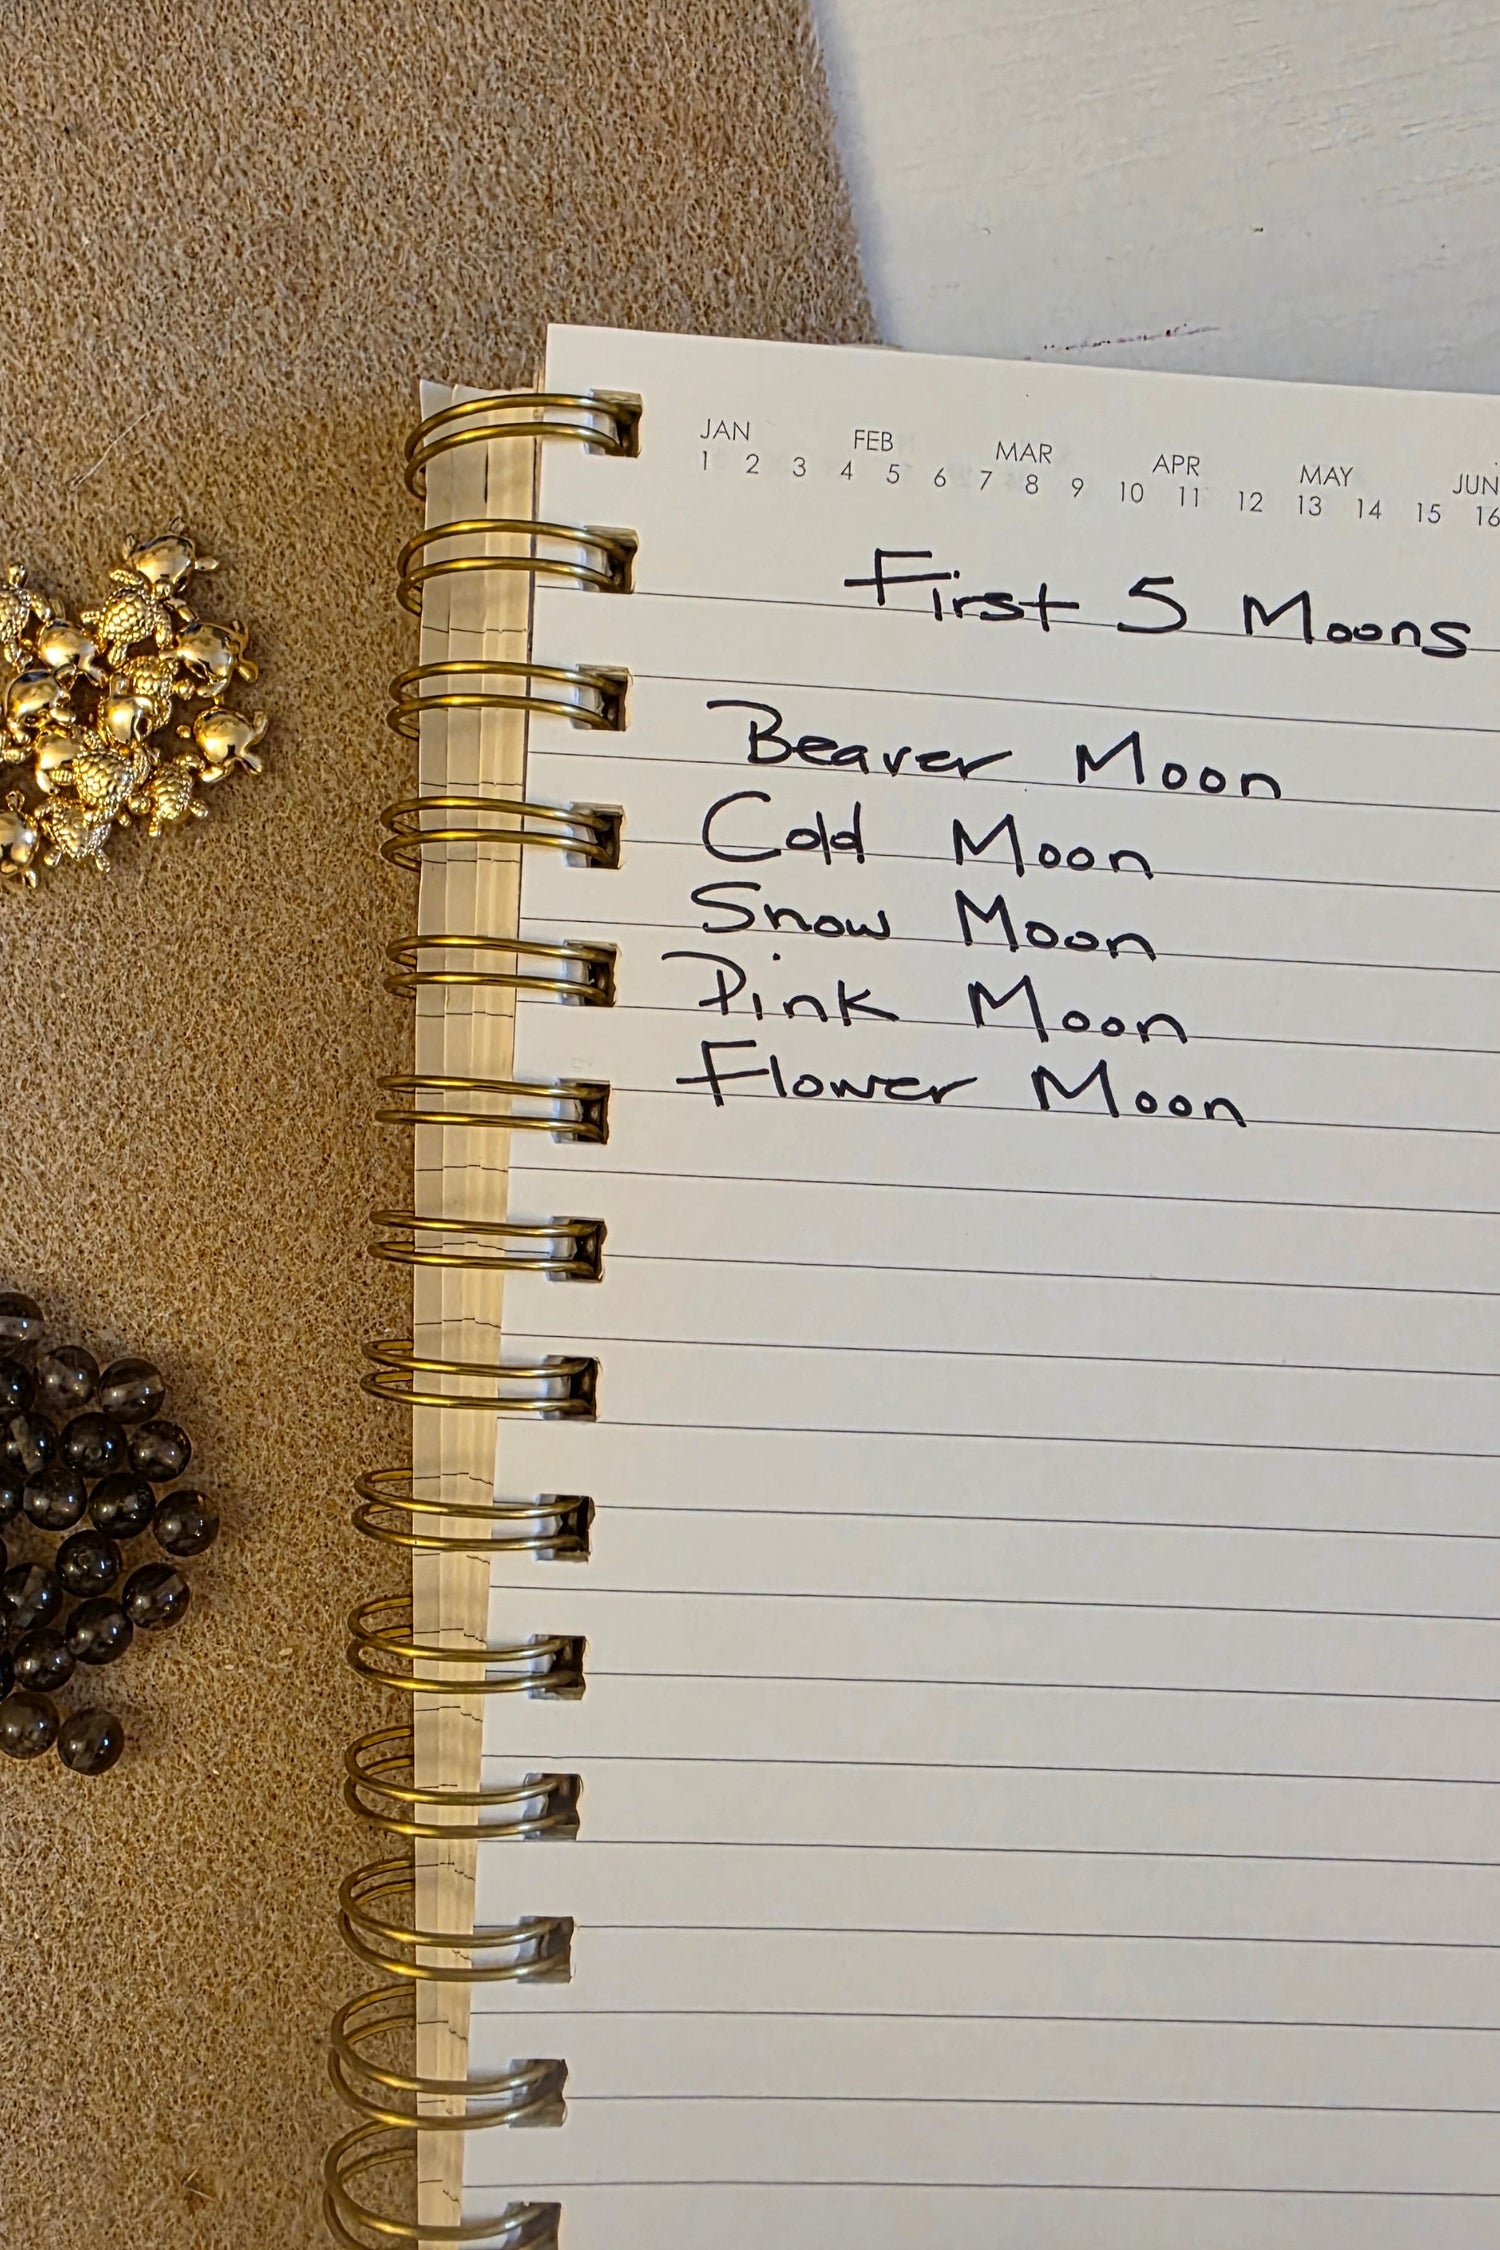 JAN FEB MAR APR MAY JUN
1 2 3 4 5 6 7 8 9 10 11 12 13 14 15 16
First 5 Moons
Beaver Moon
Cold Moon
Snow Moon
Pink Moon
Flower Moon